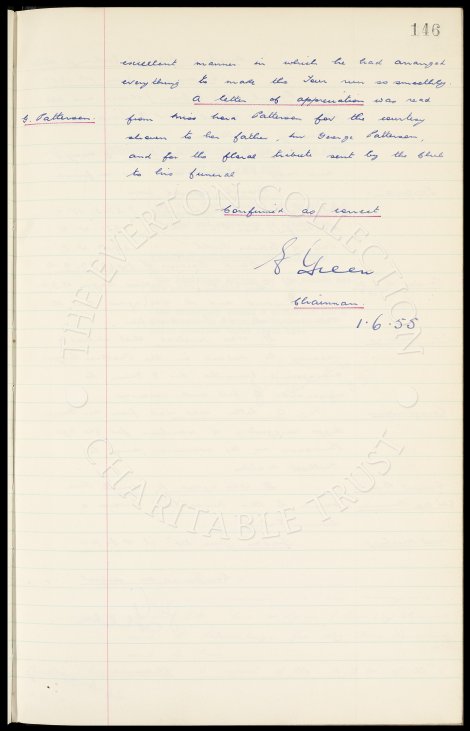 146
excellent manner in which he had arranged
everything to make the Tour run so smoothly.
A letter of appreciation was read
G. Patterson. from Miss Patterson for the courtesy
shown to her father, Mr George Patterson
and for the floral tribute sent by the Club
to his funeral
Confirmed as correct
Green
Chairman.
1.6.55
THE EVERTON COLLECTION
CHARITABLE TRUST